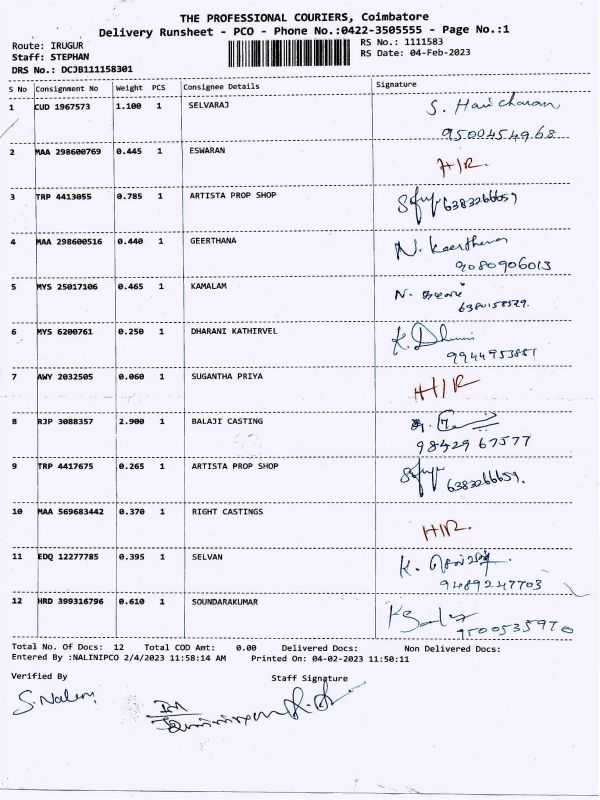 THE PROFESSIONAL COURIERS, Coimbatore
Delivery Runsheet - PCO - Phone No.:0422-3505555 - Page No.:1
Route: IRUGUR RS No.: 1111583
Staff: STEPHAN RS Date: 04-Feb-2023
DRS No.: DCJB111158301
S No Consignment No Weight PCS Consignee Details Signature
1 CUD 1967573 1.100 1 SELVARAJ S. Haricharan
9500454968
2 MAA 298600769 0.445 1 ESWARAN H/R.
3 TRP 4413055 0.785 1 ARTISTA PROP SHOP 6383266659
4 MAA 298600516 0.440 1 GEERTHANA N. Keerthana
9080906013
5 MYS 25017106 0.465 1 KAMALAM N.
6380158529.
6 MYS 6200761 0.250 1 DHARANI KATHIRVEL K. Dharani
9944953851
7 AWY 2032505 0.060 1 SUGANTHA PRIYA H/R
8 RJP 3088357 2.900 1 BALAJI CASTING
9842967577
9 TRP 4417675 0.265 1 ARTISTA PROP SHOP 6383266659.
10 MAA 569683442 0.370 1 RIGHT CASTINGS H/R.
11 EDQ 12277785 0.395 1 SELVAN K.
9489247703
12 HRD 399316796 0.610 1 SOUNDARAKUMAR
9500535970
Total No. Of Docs: 12 Total COD Amt: 0.00 Delivered Docs: Non Delivered Docs:
Entered By :NALINIPCO 2/4/2023 11:58:14 AM Printed On: 04-02-2023 11:50:11
Verified By Staff Signature
S. Nalini